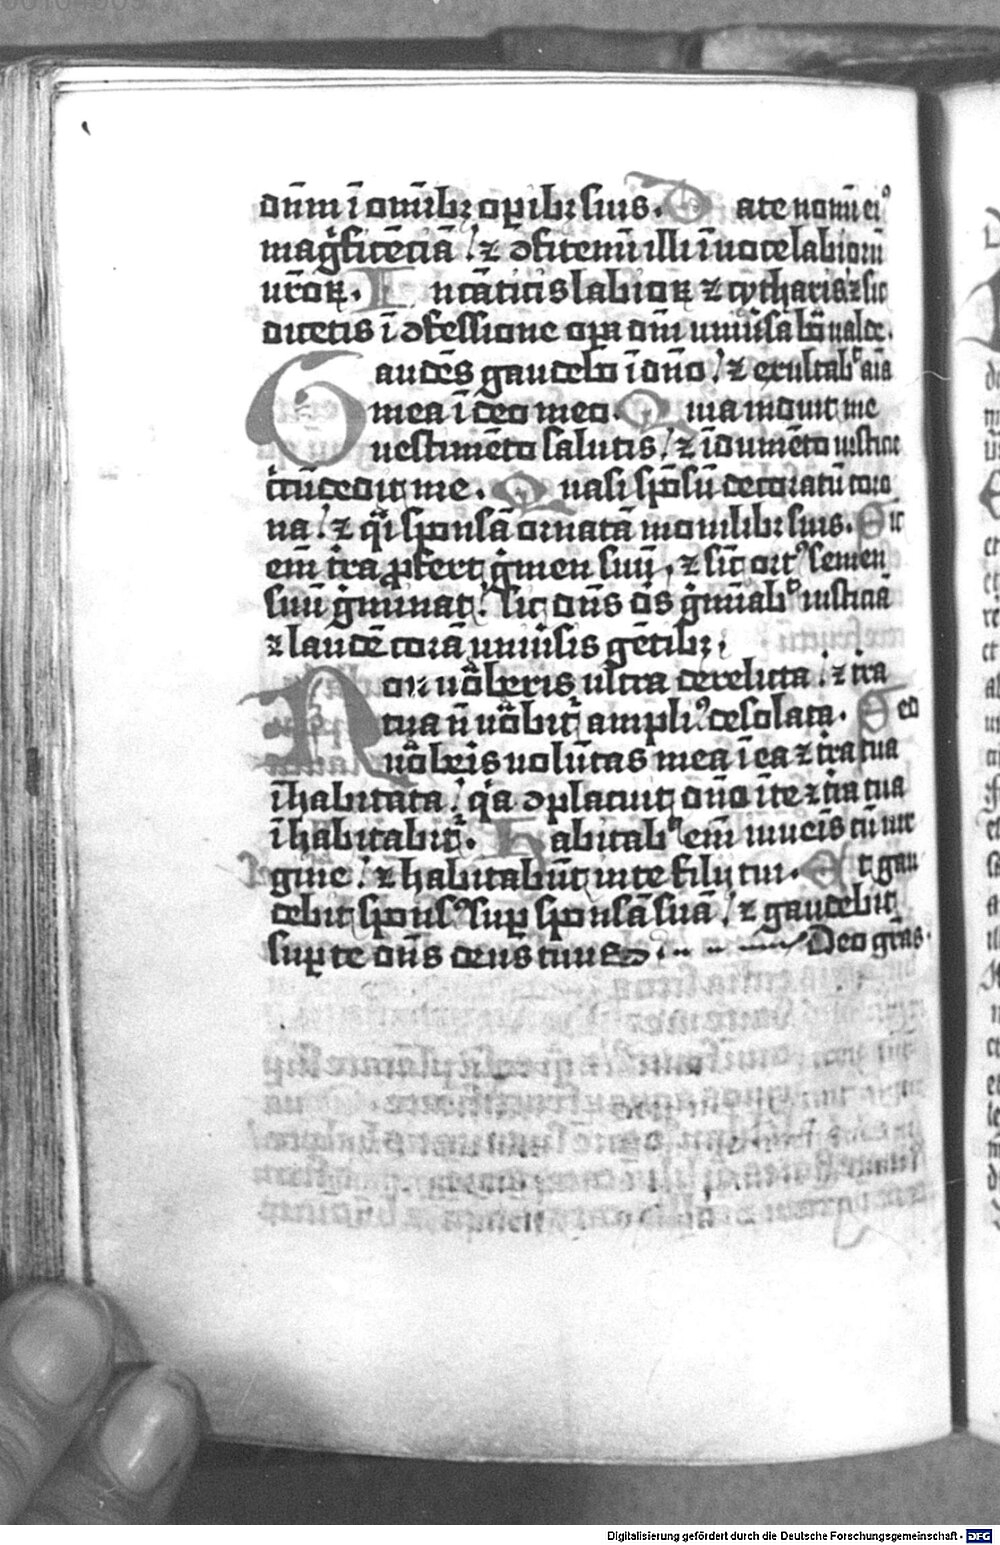 dn̄m ī om̄ibꝫ oꝑibꝫ suis. Date nomē eiꝰ
magͥficēciā / ⁊ ꝯfitem̄ illi ī uoce labioꝝ
ur̄oꝝ. In cāticis labioꝝ ⁊ cytharis / ⁊ sic
dicetis ī ꝯfessione oꝑa dn̄i uniũsa bōa ualde.
Gaudēs gaudebo ī dn̄o / ⁊ exultabͭ aīa
mea ī deo meo. Quia induit me
uestimēto salutis / ⁊ īdumēto iusticie
cͥcūdedit me. Quasi spōsū decoratū coro
na / ⁊ qͣi sponsā ornatā monilibꝫ suis. Sic
em̄ tͥra ꝓfert gͥmen suū, ⁊ sic̄ ortꝰ semen
suū gͥminat / sic dn̄s ds̄ gͥmīabͭ iusticiā
⁊ laudē corā uniũsis gētibꝫ.
Non uͦcͣberis ultra derelicta / ⁊ tͥra
tua n̄ uͦcͣbit̉ ampliꝰ desolata. Sed
uͦcͣberis uolūtas mea ī ea ⁊ tͥra tua
īhabitata / qͥa ꝯplacuit dn̄o ī te ⁊ tͥra tua
īhabitabit̉. Habitabͭ em̄ iuuenis cū uir
gine / ⁊ habitabūt in te filij tui. Et gau
debit sponsꝰ suꝑ sponsā suā / ⁊ gaudebit
suꝑ te dn̄s deus tuus Deo grās.
Digitalisierung gefördert durch die Deutsche Forschungsgemeinschaft - DFG